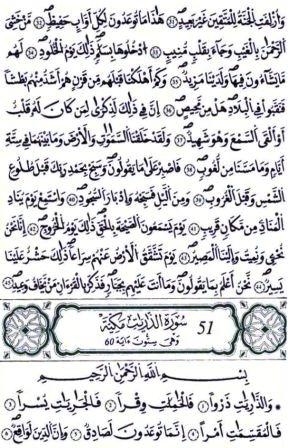 وَأُزْلِفَتِ الْجَنَّةُ لِلْمُتَّقِينَ غَيْرَ بَعِيدٍ ٣١ هَٰذَا مَا تُوعَدُونَ لِكُلِّ أَوَّابٍ حَفِيظٍ ٣٢ مَّنْ خَشِيَ
الرَّحْمَٰنَ بِالْغَيْبِ وَجَاءَ بِقَلْبٍ مُّنِيبٍ ٣٣ ادْخُلُوهَا بِسَلَٰمٍ ذَٰلِكَ يَوْمُ الْخُلُودِ ٣٤ لَهُم
مَّا يَشَاءُونَ فِيهَا وَلَدَيْنَا مَزِيدٌ ٣٥ وَكَمْ أَهْلَكْنَا قَبْلَهُم مِّن قَرْنٍ هُمْ أَشَدُّ مِنْهُم بَطْشًا
فَنَقَّبُوا فِي الْبِلَٰدِ هَلْ مِن مَّحِيصٍ ٣٦ إِنَّ فِي ذَٰلِكَ لَذِكْرَىٰ لِمَن كَانَ لَهُ قَلْبٌ
أَوْ أَلْقَى السَّمْعَ وَهُوَ شَهِيدٌ ٣٧ وَلَقَدْ خَلَقْنَا السَّمَٰوَٰتِ وَالْأَرْضَ وَمَا بَيْنَهُمَا فِي سِتَّةِ
أَيَّامٍ وَمَا مَسَّنَا مِن لُّغُوبٍ ٣٨ فَاصْبِرْ عَلَىٰ مَا يَقُولُونَ وَسَبِّحْ بِحَمْدِ رَبِّكَ قَبْلَ طُلُوعِ
الشَّمْسِ وَقَبْلَ الْغُرُوبِ ٣٩ وَمِنَ الَّيْلِ فَسَبِّحْهُ وَإِدْبَٰرَ السُّجُودِ ٤٠ وَاسْتَمِعْ يَوْمَ يُنَادِ
الْمُنَادِ مِن مَّكَانٍ قَرِيبٍ ٤١ يَوْمَ يَسْمَعُونَ الصَّيْحَةَ بِالْحَقِّ ذَٰلِكَ يَوْمُ الْخُرُوجِ ٤٢ إِنَّا نَحْنُ
نُحْيِ وَنُمِيتُ وَإِلَيْنَا الْمَصِيرُ ٤٣ يَوْمَ تَشَّقَّقُ الْأَرْضُ عَنْهُمْ سِرَاعًا ذَٰلِكَ حَشْرٌ عَلَيْنَا
يَسِيرٌ ٤٤ نَّحْنُ أَعْلَمُ بِمَا يَقُولُونَ وَمَا أَنتَ عَلَيْهِم بِجَبَّارٍ فَذَكِّرْ بِالْقُرْءَانِ مَن يَخَافُ وَعِيدِ ٤٥
51 سُورَةُ الذَّارِيَٰتِ مَكِّيَّةٌ
وَهِيَ سِتُّونَ ءَايَة 60
بِسْمِ اللَّهِ الرَّحْمَٰنِ الرَّحِيمِ
وَالذَّٰرِيَٰتِ ذَرْوًا ١ فَالْحَٰمِلَٰتِ وِقْرًا ٢ فَالْجَٰرِيَٰتِ يُسْرًا ٣
فَالْمُقَسِّمَٰتِ أَمْرًا ٤ إِنَّمَا تُوعَدُونَ لَصَادِقٌ ٥ وَإِنَّ الدِّينَ لَوَٰقِعٌ ٦